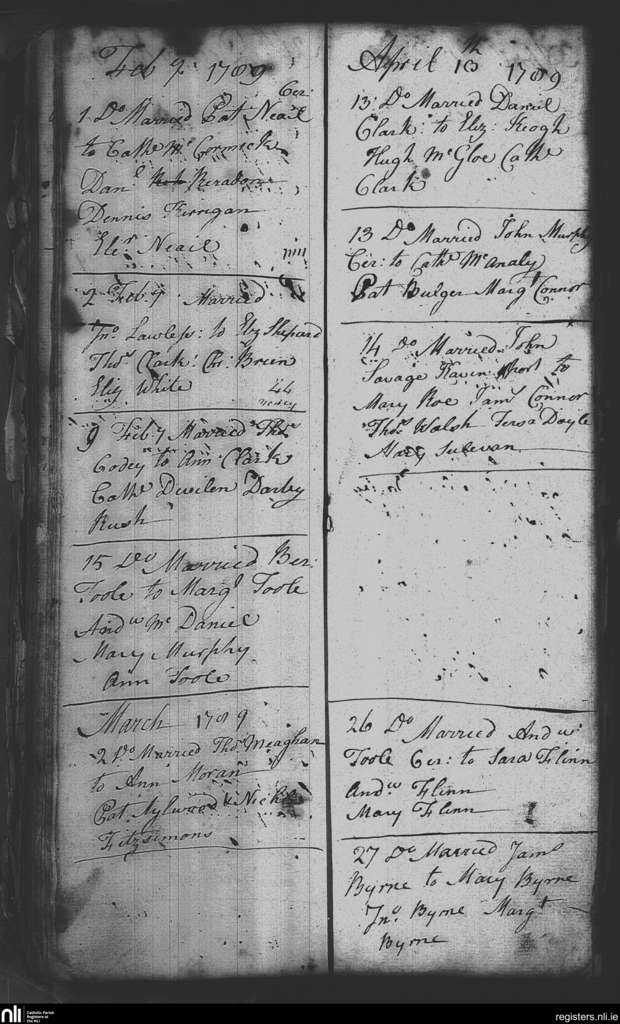 Feb 7. 1789
Cer:
1 Do Married Pat Neail
to Cathe Mc Cormick
Danl Keradon
Dennis Kerrigan
Elizr Neail
2 Feb.y Married
Jno. Lawless: to Elz Shepard
Thos Clark: Chr: Breen
Eliz White
9 Feb.y Married Thos
Codey to Ann Clark
Cathe Dwilen Darby
Rush
15 Do Married Ber:
Toole to Margt Toole
Andw Mc Daniel
Mary Murphy
Ann Toole
March 1789
2 Do Married Thos Meaghan
to Ann Moran
Pat Aylward & Nichs
Fitzsimons
April 13th 1789
13: Do Married Daniel
Clark: to Eliz: Keogh
Hugh Mc Gloe Cathe
Clark
13 Do Married John Murphy
Cer: to Cathe Mc Analy
Pat Bulger Margt Connor
14 do Married John
Savage to
Mary Roe Jams Connor
Thos Walsh Teresa Doyle
Mary Sulevan
26 Do Married Andw
Toole Cer: to Sara Flinn
Andw Flinn
Mary Flinn
27 Do Married Jams
Byrne to Mary Byrne
Jno. Byrne Margt
Byrne
nli Catholic Parish
Registers at
the NLI
registers.nli.ie